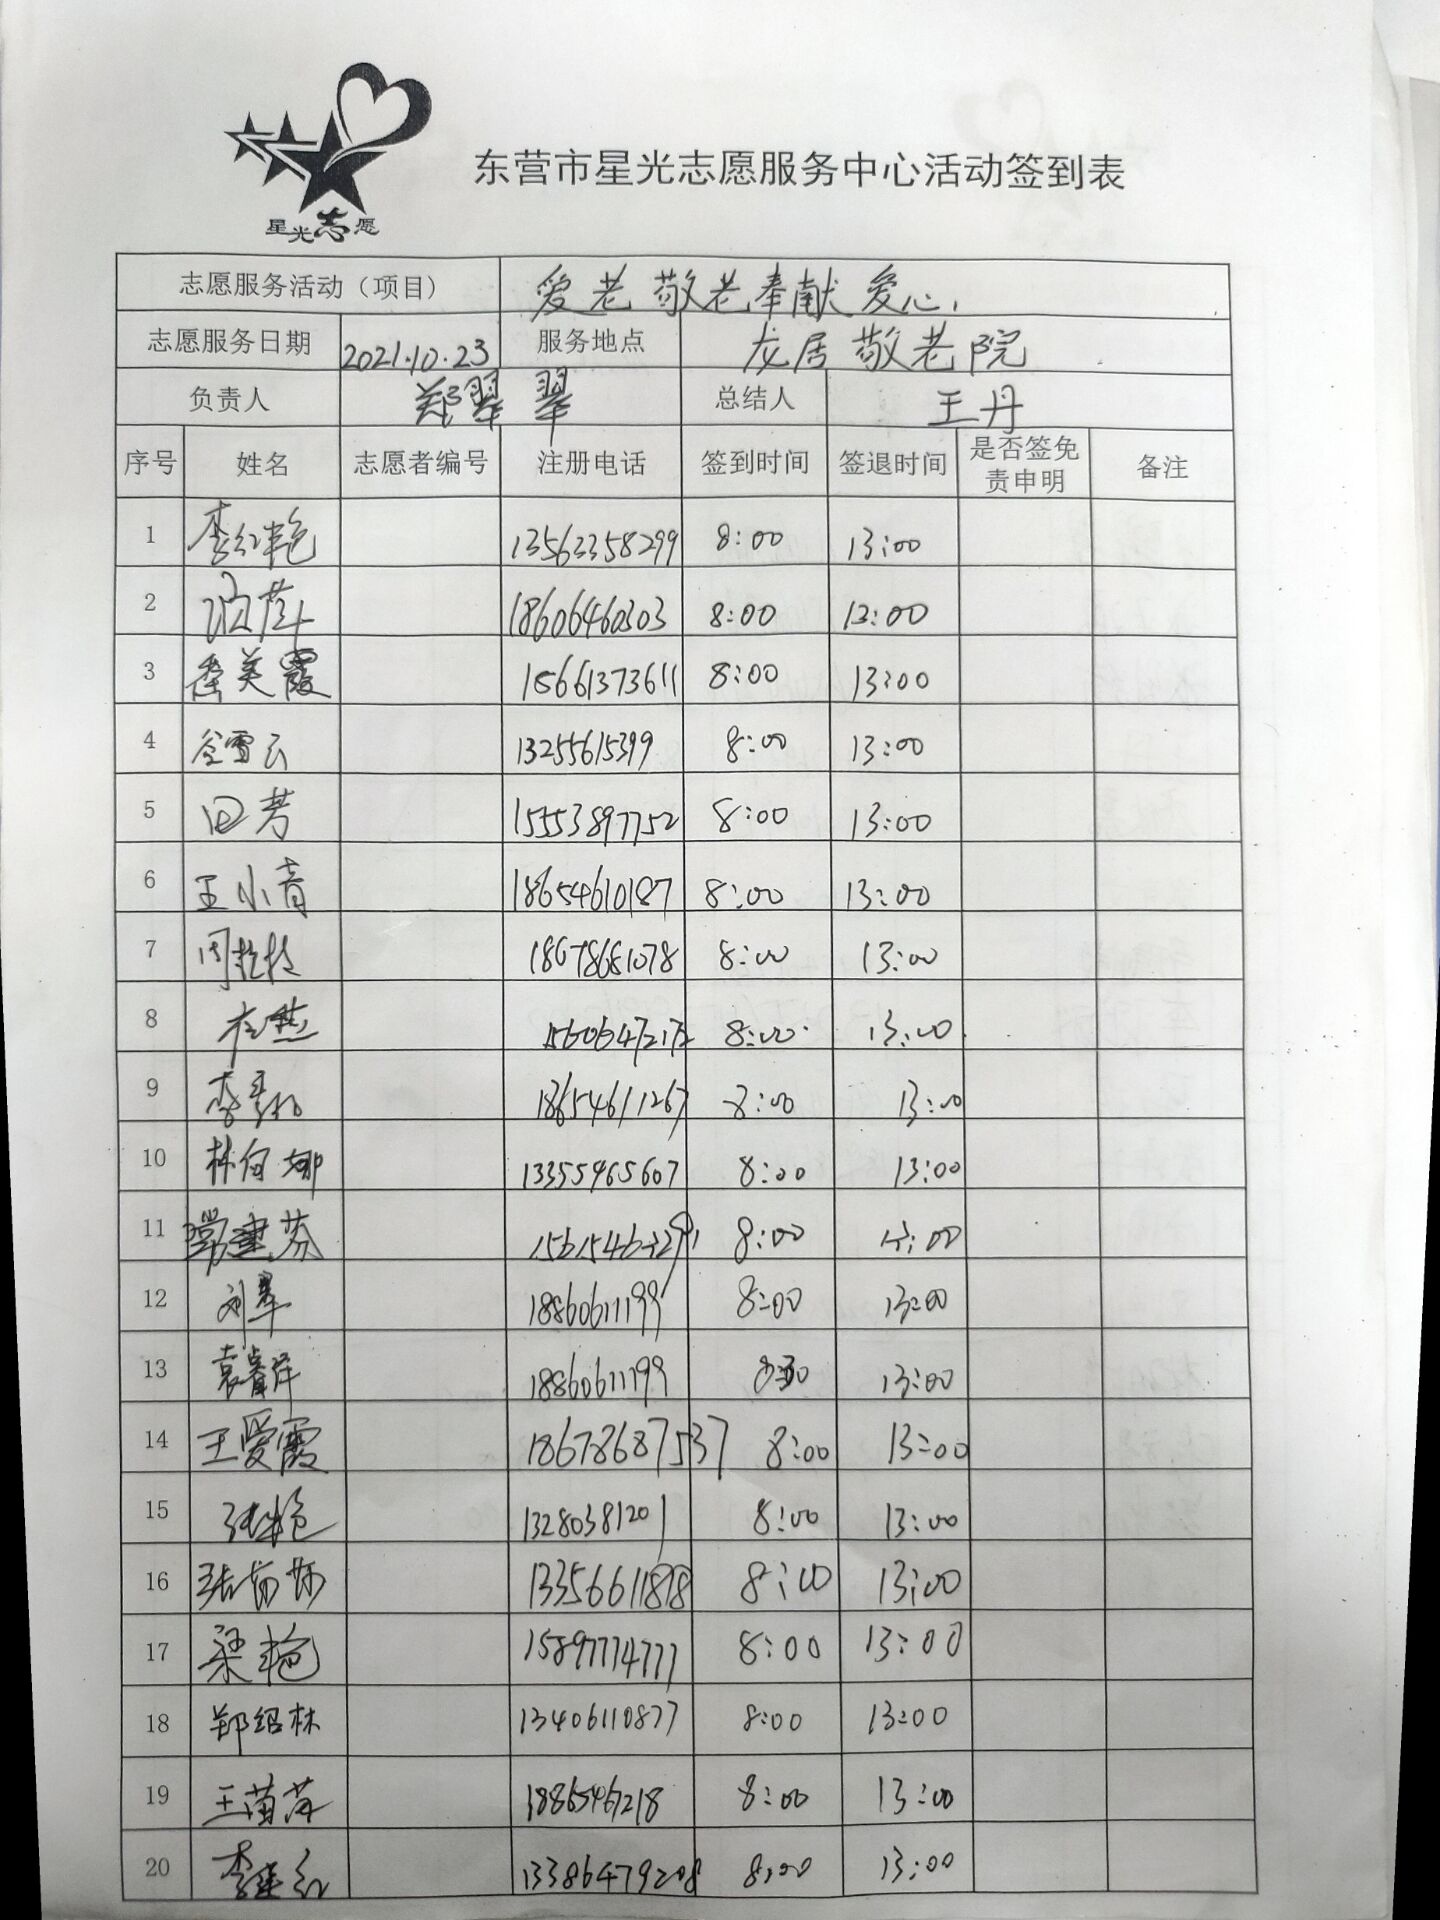 东营市星光志愿服务中心活动签到表
星光志愿
志愿服务活动（项目） 爱老敬老奉献爱心
志愿服务日期 2021.10.23 服务地点 龙居敬老院
负责人 郑翠翠 总结人 王丹
序号 姓名 志愿者编号 注册电话 签到时间 签退时间 是否签免责申明 备注
1 李红艳 13563358299 8:00 13:00
2 18606460303 8:00 13:00
3 季美霞 15661373611 8:00 13:00
4 谷雪云 13255615399 8:00 13:00
5 田芳 15553897752 8:00 13:00
6 王小青 18654610187 8:00 13:00
7 18678681078 8:00 13:00
8 8:00 13:00
9 18654611267 8:00 13:00
10 林向娜 13355465607 8:00 13:00
11 常建芬 8:00
12 刘翠 18860611199 8:00 13:00
13 袁睿洋 18860611199 13:00
14 王爱霞 18678687537 8:00 13:00
15 张艳 13280381201 8:00 13:00
16 13356611878 8:00 13:00
17 梁艳 15897774777 8:00 13:00
18 郑绍林 13406110877 8:00 13:00
19 8:00 13:00
20 13386479208 8:00 13:00